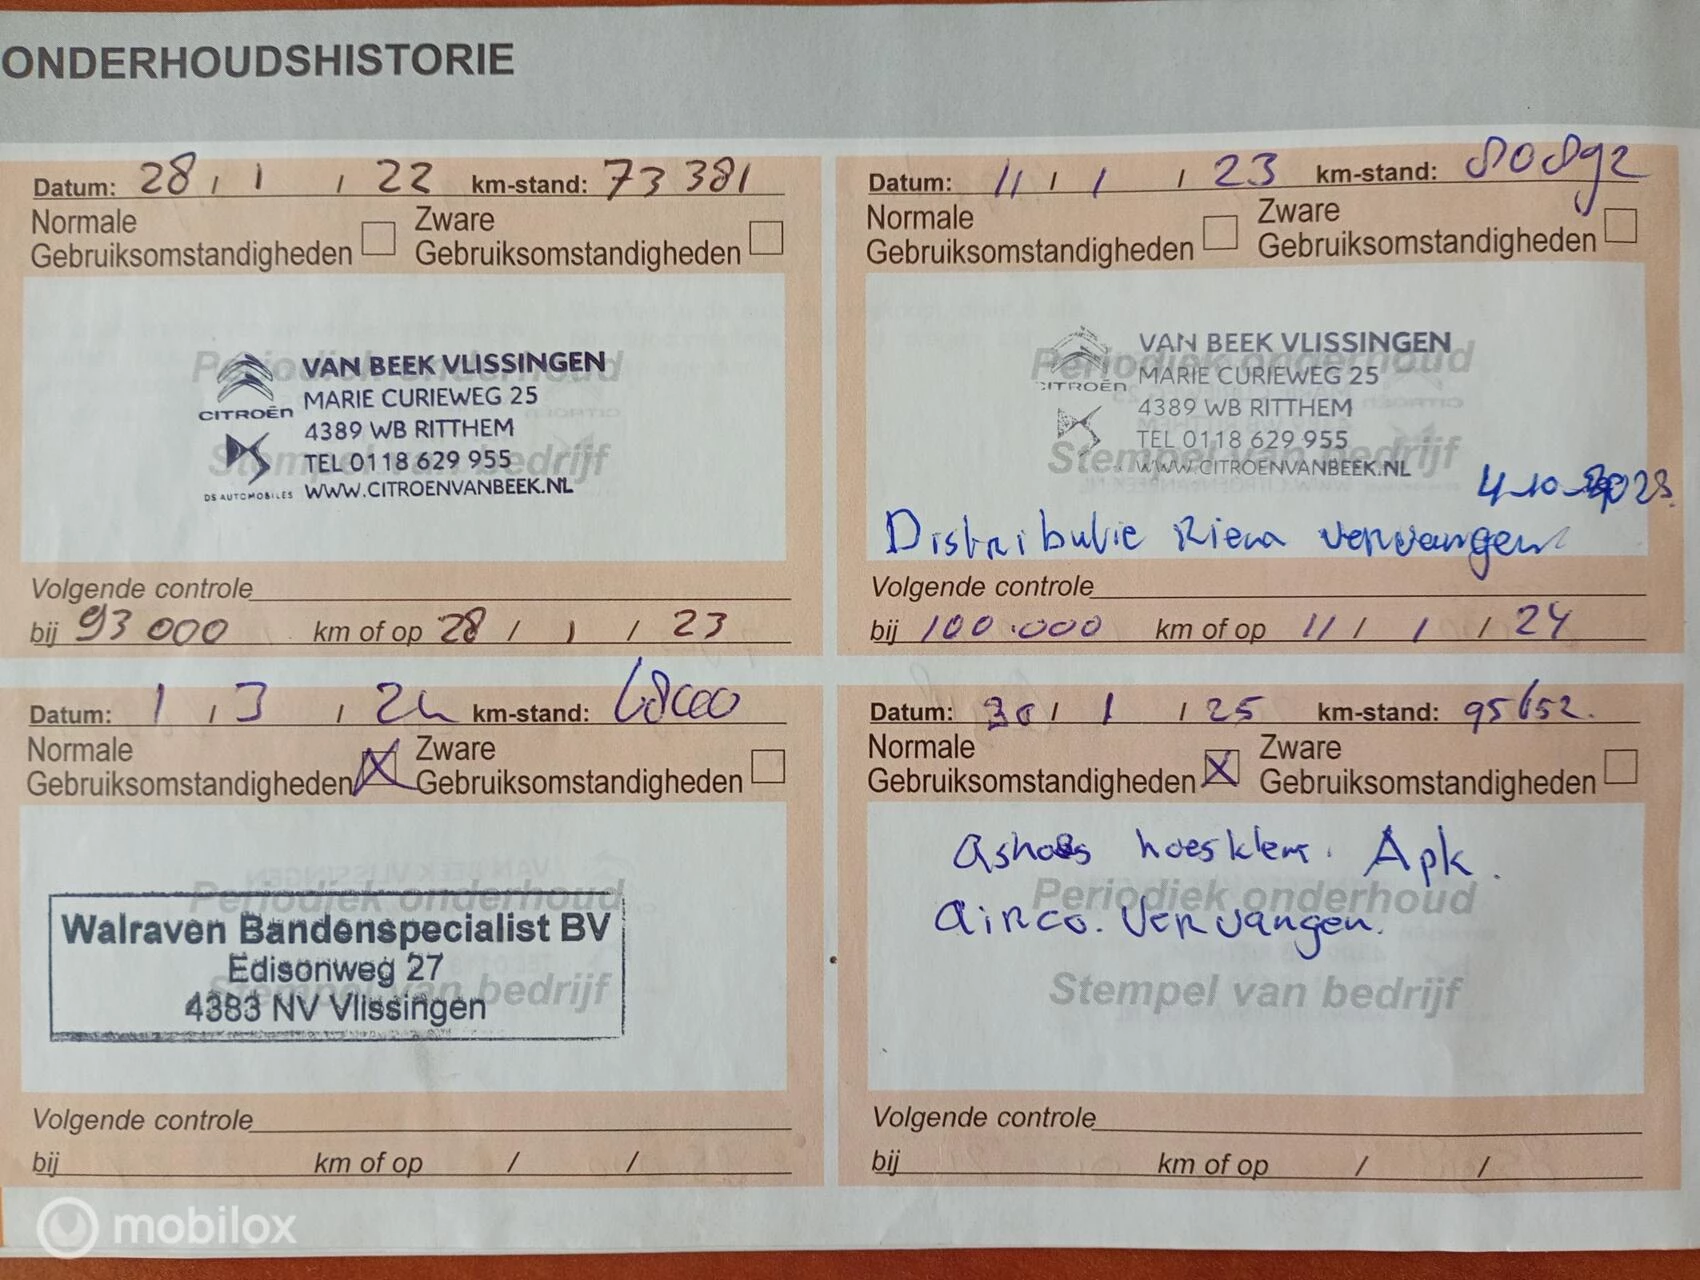 ONDERHOUDSHISTORIE
Datum: 28 / 1 / 22 km-stand: 73 381
Normale Gebruiksomstandigheden Zware Gebruiksomstandigheden
Periodiek onderhoud
Stempel van bedrijf
CITROËN
DS AUTOMOBILES
VAN BEEK VLISSINGEN
MARIE CURIEWEG 25
4389 WB RITTHEM
TEL 0118 629 955
WWW.CITROENVANBEEK.NL
Volgende controle
bij 93 000 km of op 28 / 1 / 23
Datum: 11 / 1 / 23 km-stand: 80892
Normale Gebruiksomstandigheden Zware Gebruiksomstandigheden
Periodiek onderhoud
Stempel van bedrijf
CITROËN
VAN BEEK VLISSINGEN
MARIE CURIEWEG 25
4389 WB RITTHEM
TEL 0118 629 955
WWW.CITROENVANBEEK.NL
4-10-2023.
Distributie Riem vervangen
Volgende controle
bij 100.000 km of op 11 / 1 / 24
Datum: 1 / 3 / 24 km-stand:
Normale Gebruiksomstandigheden Zware Gebruiksomstandigheden
Periodiek onderhoud
Stempel van bedrijf
Walraven Bandenspecialist BV
Edisonweg 27
4383 NV Vlissingen
Volgende controle
bij km of op / /
Datum: 30 / 1 / 25 km-stand: 95652.
Normale Gebruiksomstandigheden Zware Gebruiksomstandigheden
Apk.
airco. Vervangen.
Periodiek onderhoud
Stempel van bedrijf
Volgende controle
bij km of op / /
mobilox